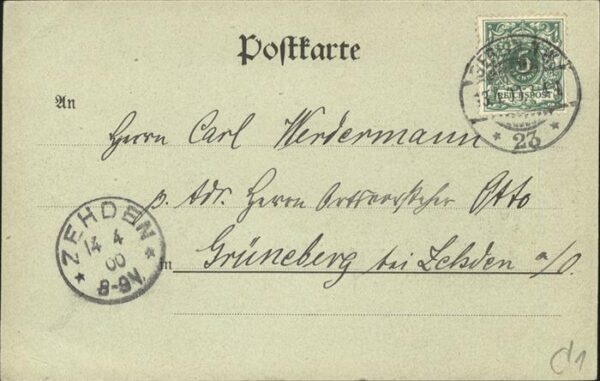 Postkarte
5
REICHSPOST
* 23 *
An
Herrn Carl Werdermann
p. Adr. Herrn Ortsvorsteher Otto
in Grüneberg bei Zehden a/O.
ZEHDEN
14 4
00
8-9V.
* *
d1